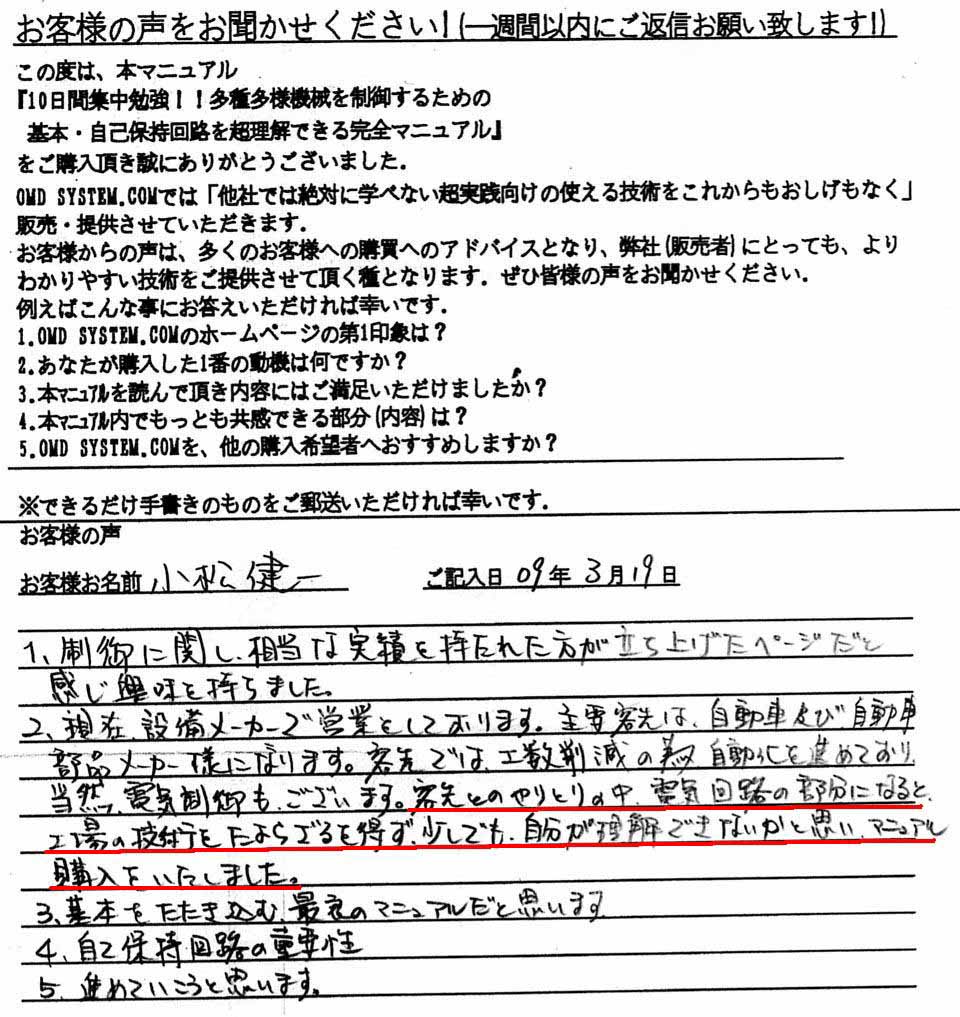 お客様の声をお聞かせください!(一週間以内にご返信お願い致します!)
この度は、本マニュアル
『10日間集中勉強!!多種多様機械を制御するための
基本・自己保持回路を超理解できる完全マニュアル』
をご購入頂き誠にありがとうございました.
OMD SYSTEM.COMでは「他社では絶対に学べない超実践向けの使える技術をこれからもおしげもなく」
販売・提供させていただきます.
お客様からの声は、多くのお客様への購買へのアドバイスとなり、弊社(販売者)にとっても、より
わかりやすい技術をご提供させて頂く種となります.ぜひ皆様の声をお聞かせください.
例えばこんな事にお答えいただければ幸いです.
1.OMD SYSTEM.COMのホームページの第1印象は?
2.あなたが購入した1番の動機は何ですか?
3.本マニュアルを読んで頂き内容にはご満足いただけましたか?
4.本マニュアル内でもっとも共感できる部分(内容)は?
5.OMD SYSTEM.COMを、他の購入希望者へおすすめしますか?
※できるだけ手書きのものをご郵送いただければ幸いです.
お客様の声
お客様お名前 小松健一 ご記入日 09年 3月19日
1、制御に関し、相当な実績を持たれた方が立ち上げたページだと
感じ興味を持ちました。
2、現在、設備メーカーで営業をしております。主要客先は、自動車及び自動車
部品メーカー様になります。客先では、工数削減の為 自動化を進めており、
当然、電気制御も、ございます。客先とのやりとりの中、電気回路の部分になると、
工場の技術をたよらざるを得ず、少しでも、自分が理解できないかと思い、マニュアル
購入をいたしました。
3、基本をたたき込む、最良のマニュアルだと思います
4、自己保持回路の重要性
5、進めていこうと思います。